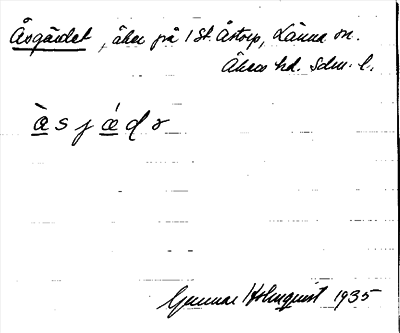 Åsgärdet, åker på 1 St. Åstorp, Länna sn.
Åkers hd. Sdm. l.
àsjǽdɘ
Gunnar Holmquist 1935